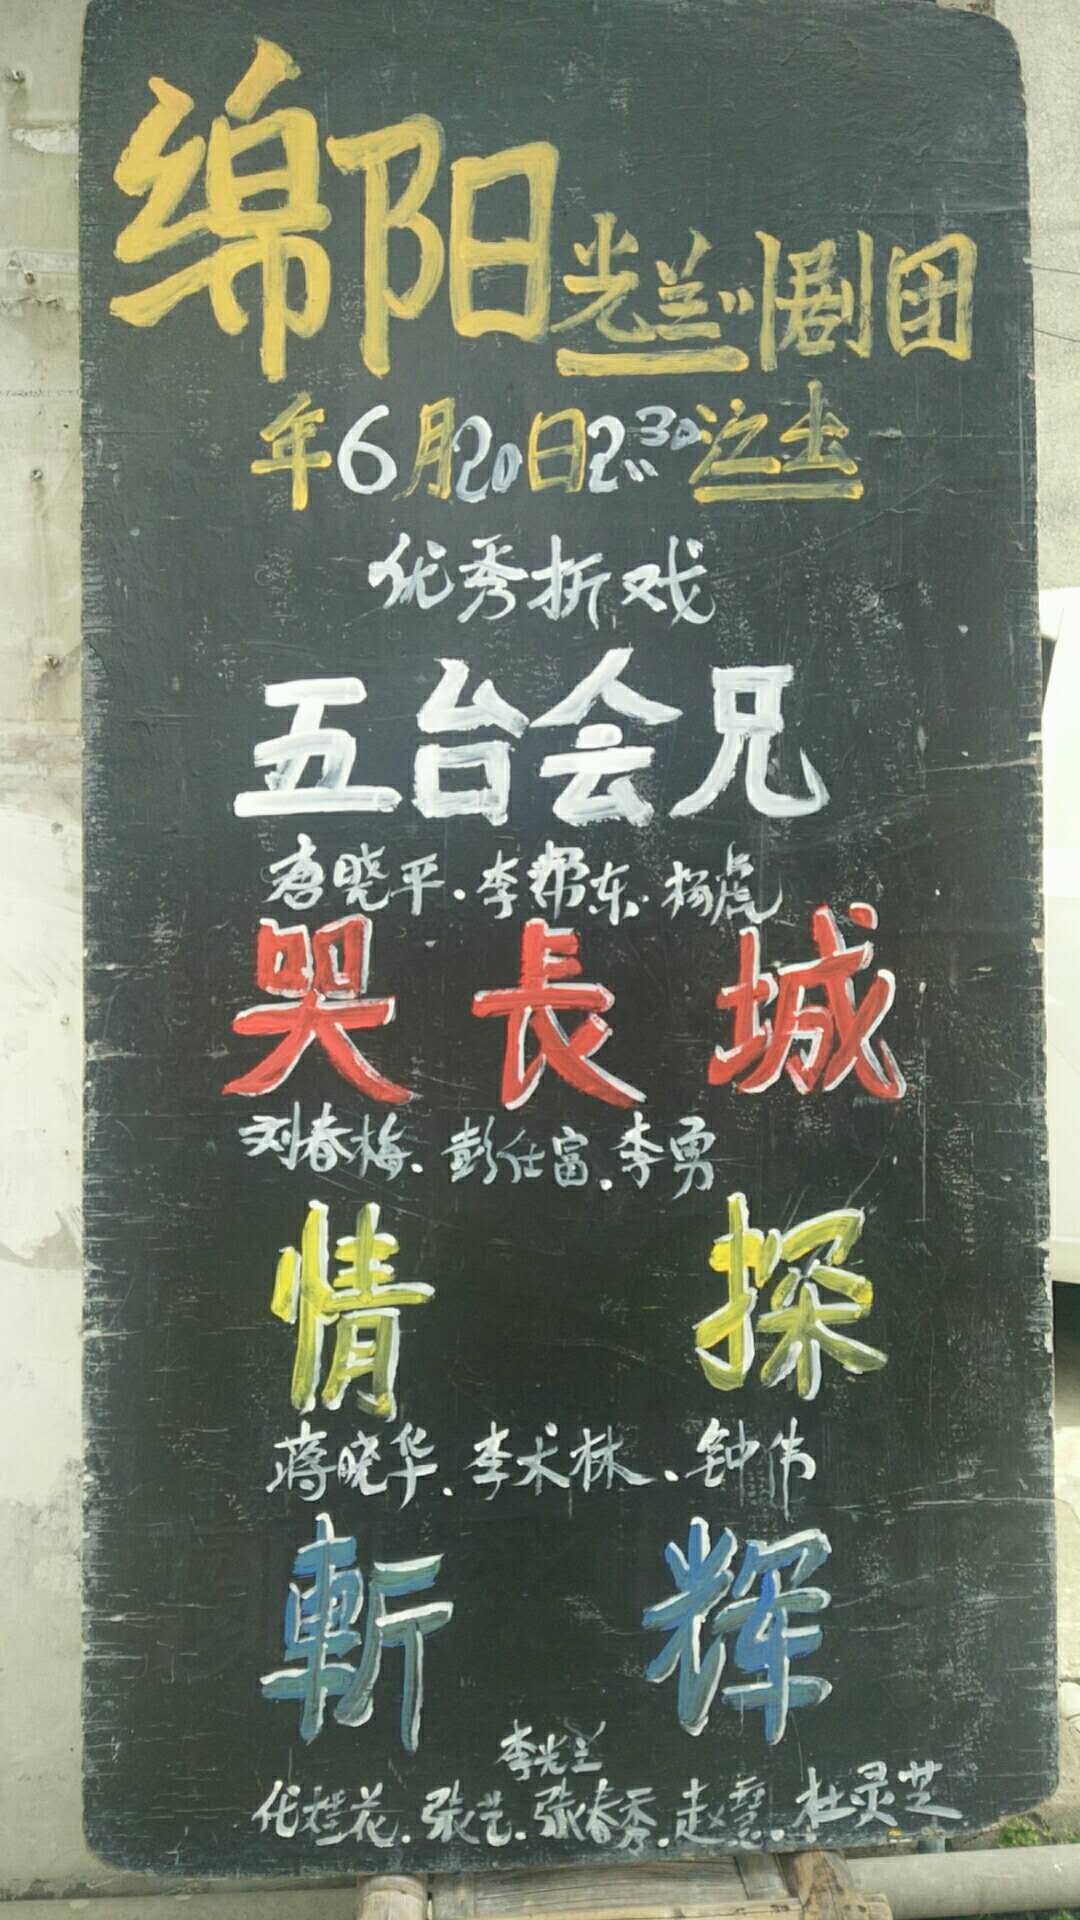 绵阳光兰川剧团
年6月20日2:30演出
优秀折戏
五台会兄
唐晓平.李帮东.杨虎
哭长城
刘春梅.彭仕富.李勇
情探
蒋晓华.李术林.钟伟
斬辉
李光兰
代桂花.张艺.张春秀.赵慧.杜灵芝